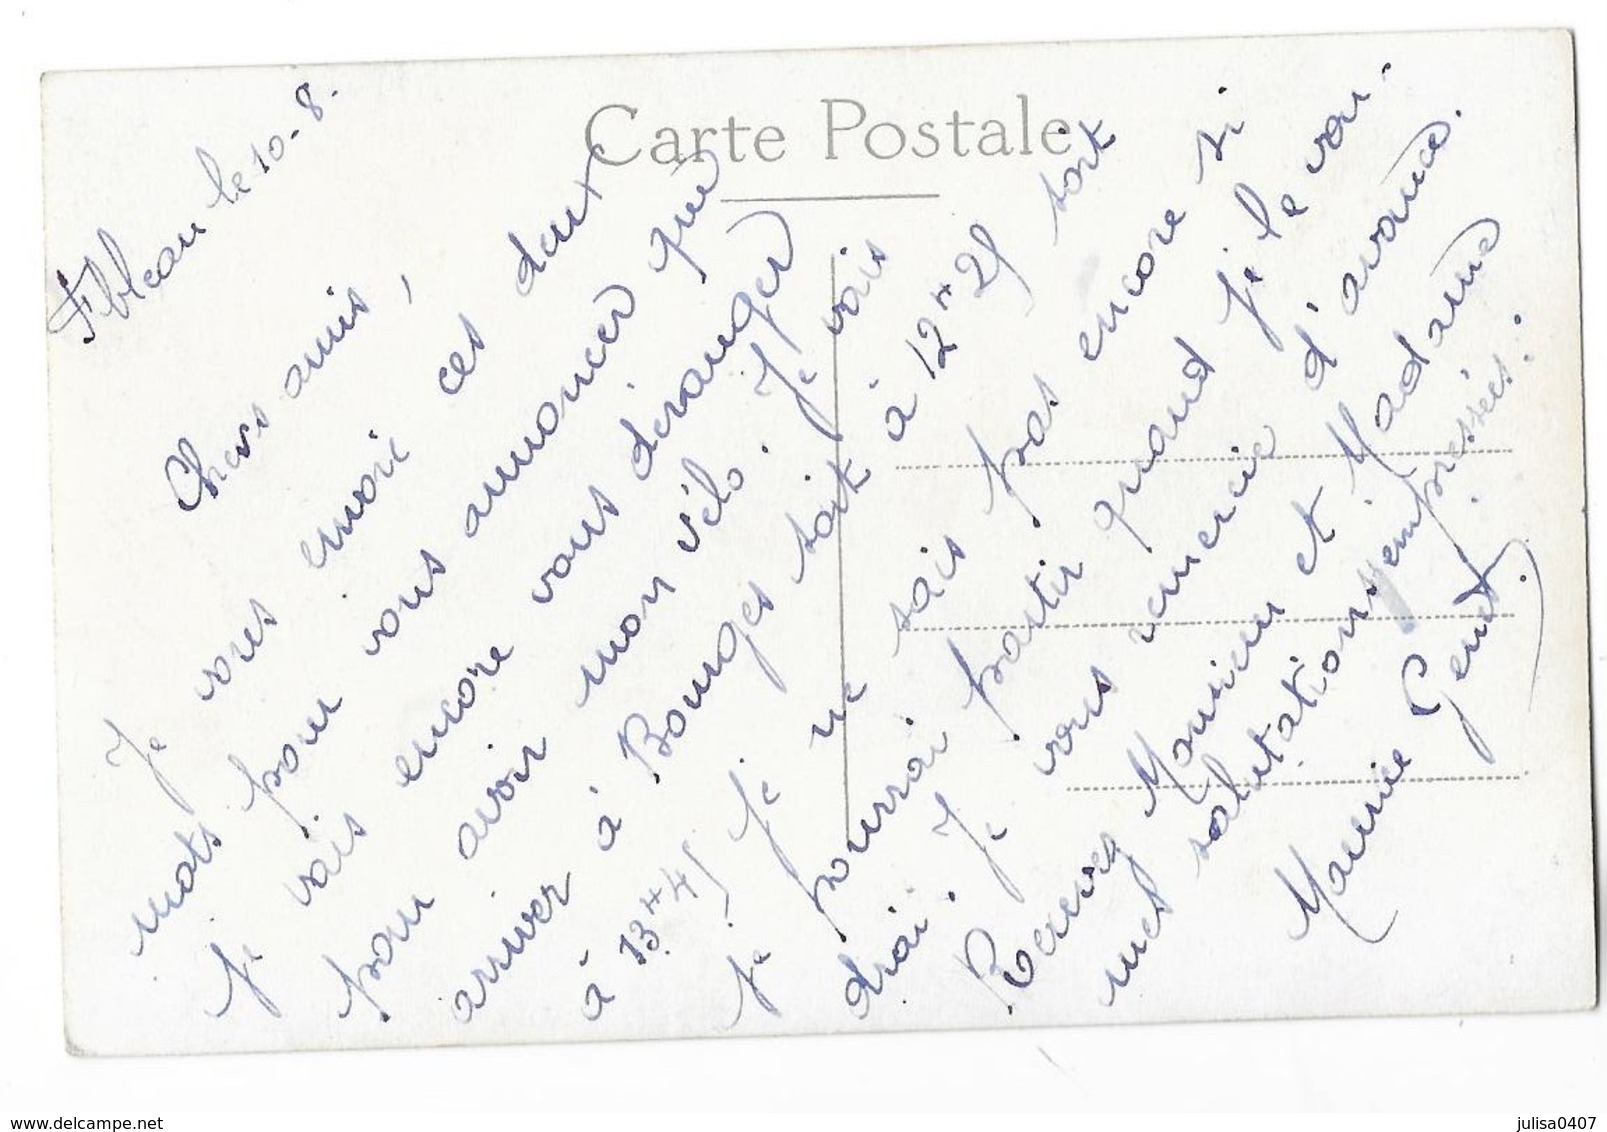 Carte Postale
Fbleau le 10-8.
Chers amis,
Je vous envoie ces deux
mots pour vous annoncer que
je vais encore vous déranger
pour avoir mon vélo. Je vais
arriver à Bourges soit à 12H25 soit
à 13H45 Je ne sais pas encore si
je pourrai partir quand je le vou-
drai. Je vous remercie d'avance.
Recevez Monsieur et Madame
mes salutations empressées.
Maurice Genet.
julisa0407
www.delcampe.net